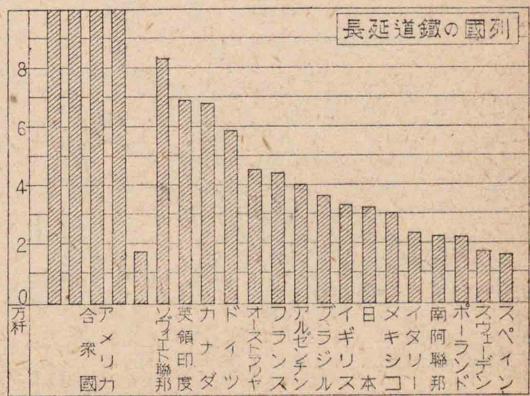 列國の鐵道延長
8
6
4
2
0
万粁
アメリカ
合衆國
ソヴィエト聯邦
英領印度
カナダ
ドイツ
オーストラリヤ
フランス
アルゼンチン
ブラジル
イギリス
日本
メキシコ
イタリー
南阿聯邦
ポーランド
スウェーデン
スペイン